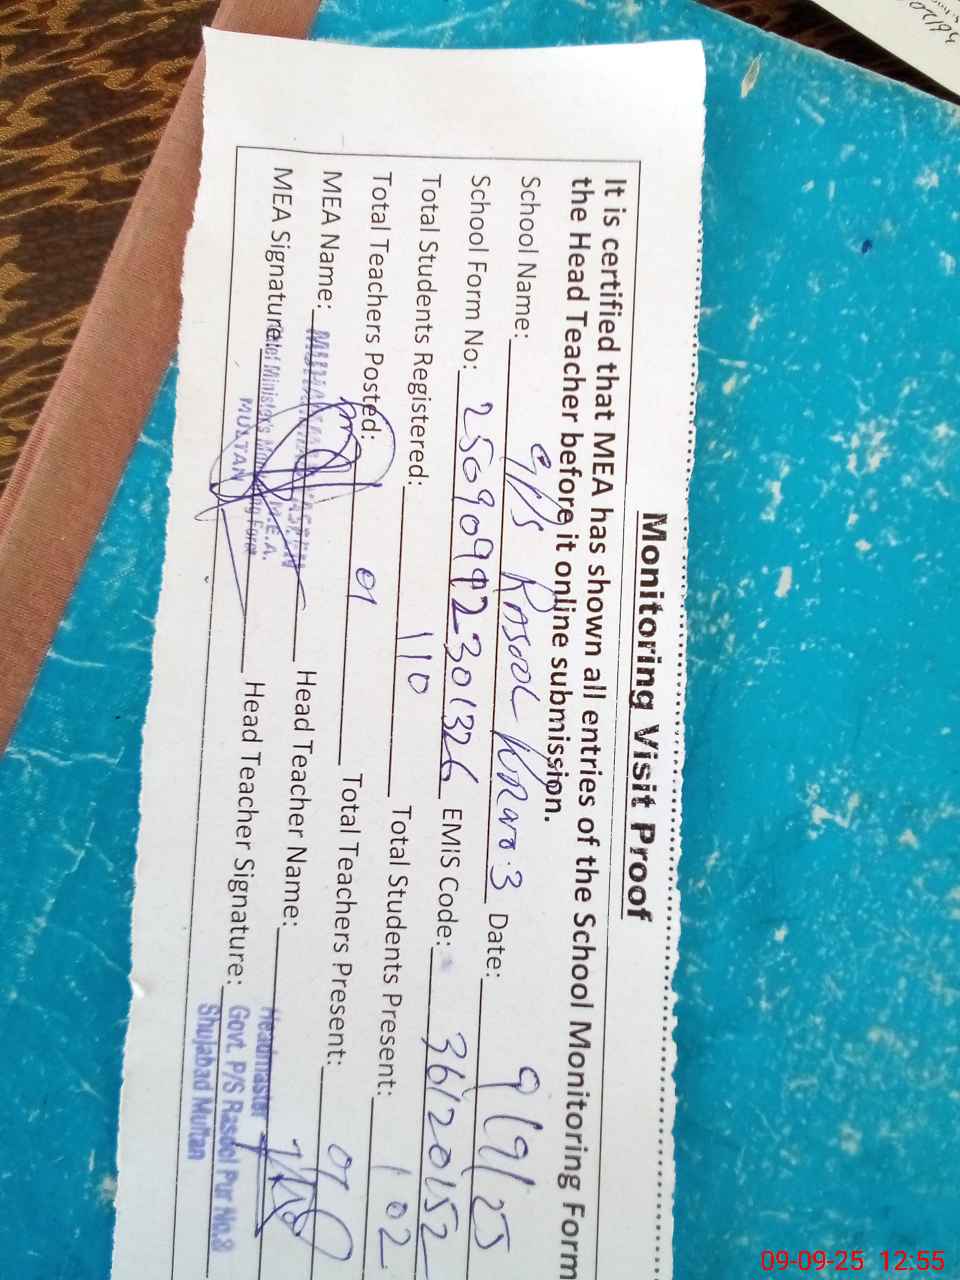 Monitoring Visit Proof
It is certified that MEA has shown all entries of the School Monitoring Form
the Head Teacher before it online submission.
School Name: Date: 9/9/25
School Form No: EMIS Code: 36120152
Total Students Registered: 110 Total Students Present: 102
Total Teachers Posted: 01 Total Teachers Present: 01
MEA Name: Head Teacher Name:
MEA Signature: Head Teacher Signature:
MULTAN
Headmaster
Govt. P/S Rasool Pur No.3
Shujabad Multan
09-09-25 12:55